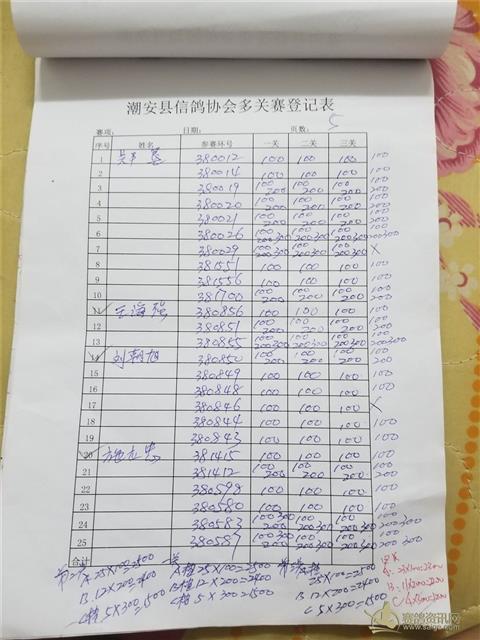 潮安县信鸽协会多关赛登记表
赛项: 日期: 页数: 5
序号 姓名 参赛环号 一关 二关 三关
1 380012 100 100 100 100
2 380014 100 100 100 100
3 380019 100 200 100 200 100 200 100 200
4 380020 100 200 100 200 100 200 100 200
5 380021 100 200 100 200 100 200 100 200
6 380026 100 200 300 100 200 300 100 200 300 100 200 300
7 380029 100 200 300 100 200 300 100 200 300 X
8 381551 100 100 100 100
9 381556 100 100 100 100
10 381700 100 200 100 200 100 200 100 200
11 王海强 380856 100 100 100 100
12 380851 100 200 100 200 100 200 100 200
13 380855 100 200 300 100 200 300 100 200 300 100 200 300
14 刘朝旭 380850 100 200 100 200 100 200 100 200
15 380849 100 100 100 100
16 380848 100 100 100 100
17 380846 100 100 100 X
18 380844 100 100 100 100
19 380843 100 100 100 100
20 施志忠 381415 100 100 100 100
21 381412 100 200 100 200 100 200 100 200
22 380598 100 100 100 100
23 380580 100 100 100 100
24 380583 100 200 300 100 200 300 100 200 300 100 200 300
25 380587 100 200 300 100 200 300 100 200 300 100 200 300
合计
A 25X100=2500 A档 25X100=2500 25X100=2500
B.12X200=2400 B档 12X200=2400 B 12X200=2400
C档 5X300=1500 C档 5X300=1500 C 5X300=1500